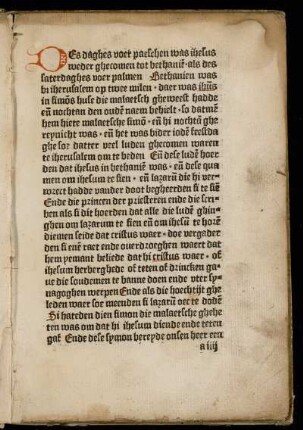 DEs daghes voer paeschen was ihesus
weder ghecomen tot bethanië · als des
saterdaghes voer palmen Bethanien was
bi iherusalem op twee milen · daer was ihūs
in simōs huse die malaetsch gheweest hadde
eñ nochtan den oudē naem behielt · so datmē
hem hiete malaetsche simō · eñ hi nochtā ghe
reynicht was · eñ het was bider iodē feestda
ghe sor datter veel luden ghecomen waren
te iherusalem om te beden Eñ dese ludē hoer
den dat ihesus in bethanië was · eñ dese qua
men om ihesum te sien · eñ lazarū die hi ver
wect hadde vander doot begheerden si te siē
Ende die princen der priesteren ende die scri
ben als si die hoerden dat alle die ludē ghin
ghen om lazarum te sien eñ om ihesū te horē
diemen seide dat cristus waer · doe vergader
den si enē raet ende ouerdroeghen waert dat
hem yemant beliede dat hi cristus waer · of
ihesum herberghede of eten of drincken ga
ue die soudemen te banne doen ende vter sy
nagoghen werpen Ende als die hoechtijt ghe
leden waer soe meenden si lazarū oec te dodē
Si hateden dien simon die malaetsche ghehe
ten was om dat hi ihesum diende ende eten
gaf Ende dese symon bereyde onsen heer een
a iiij